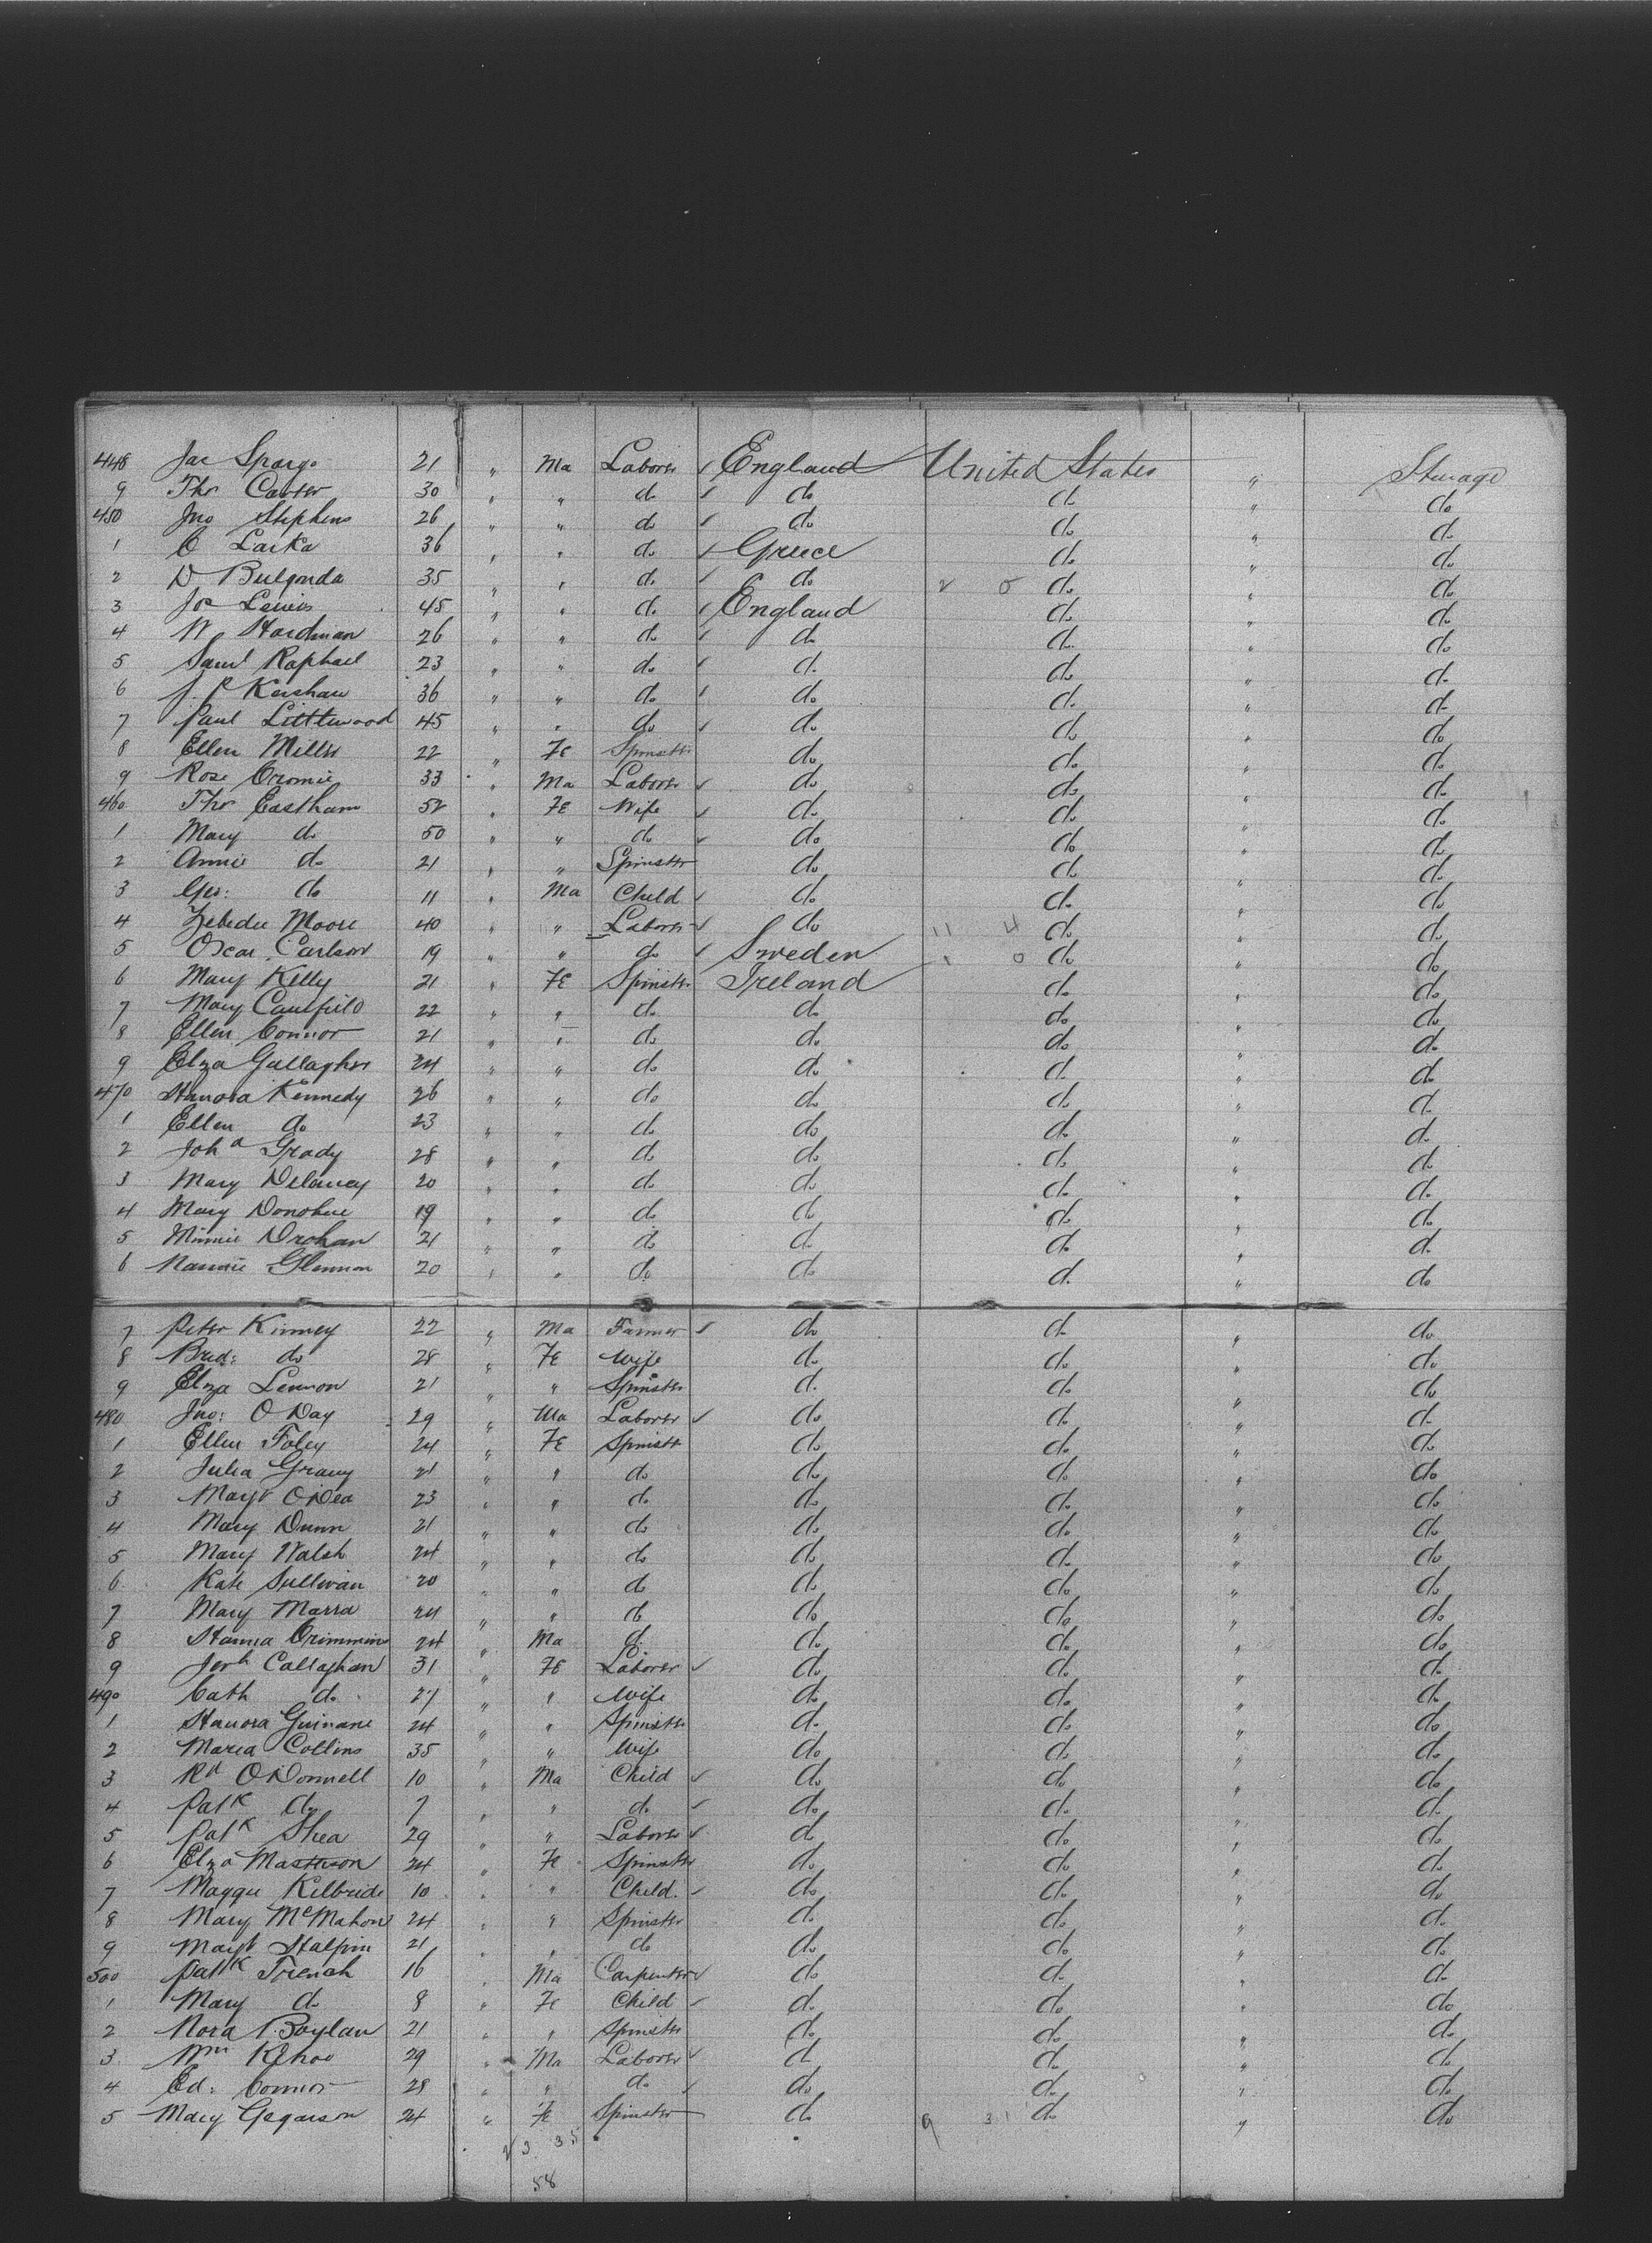 448 Jas Spargo 21 " Ma Laborer ✓ England United States " Sturage
9 Thos Carter 30 " " do ✓ do do " do
450 Jno Stephens 26 " " do ✓ do do " do
1 C Laika 36 " " do ✓ Greece do " do
2 D 35 " " do ✓ do 2 0 do " do
3 Jos Lewis 45 " " do ✓ England do " do
4 W Hardman 26 " " do ✓ do do " do
5 Saml Raphael 23 " " do ✓ do do " do
6 J. P Kershaw 36 " " do ✓ do do " do
7 Paul Littlewood 45 " " do ✓ do do " do
8 Ellen Miller 22 " Fe Spinster do do " do
9 Rose Cromie 33 " Ma Laborer ✓ do do " do
460 Thos Eastham 52 " Fe Wife ✓ do do " do
1 Mary do 50 " " do ✓ do do " do
2 Annie do 21 " " Spinster do do " do
3 Geo: do 11 " Ma Child ✓ do do " do
4 Zebedee Moore 40 " " Laborer ✓ do 11 4 do " do
5 Oscar Carlson 19 " " do ✓ Sweden 1 0 do " do
6 Mary Kelly 21 " Fe Spinster Ireland do " do
7 Mary Caulfield 22 " " do do do " do
8 Ellen Connor 21 " " do do do " do
9 Elza Gallagher 24 " " do do do " do
470 Hanora Kennedy 26 " " do do do " do
1 Ellen do 23 " " do do do " do
2 Joha Grady 28 " " do do do " do
3 Mary Delaney 20 " " do do do " do
4 Mary Donohue 19 " " do do do " do
5 Minnie Drohan 21 " " do do do " do
6 Nannie Glennon 20 " " do do do " do
7 Peter Kinney 22 " Ma Farmer ✓ do do " do
8 Brid: do 28 " Fe Wife do do " do
9 Elza Lennon 21 " " Spinster do do " do
480 Jno: O Day 29 " Ma Laborer ✓ do do " do
1 Ellen Foley 24 " Fe Spinster do do " do
2 Julia Grany 21 " " do do do " do
3 Margt O'Dea 23 " " do do do " do
4 Mary Dunn 21 " " do do do " do
5 Mary Walsh 24 " " do do do " do
6 Kate Sullivan 20 " " do do do " do
7 Mary Marra 24 " " do do do " do
8 Hanna Crimmins 24 " Ma do do do " do
9 Jerh Callaghan 31 " Fe Laborer ✓ do do " do
490 Cath do 27 " " Wife do do " do
1 Hanora Guinane 24 " " Spinster do do " do
2 Maria Collins 35 " " Wife do do " do
3 Rd O'Donnell 10 " Ma Child ✓ do do " do
4 Patk do 7 " " do ✓ do do " do
5 Patk Shea 29 " " Laborer ✓ do do " do
6 Elza Masterson 24 " Fe Spinster do do " do
7 Maggie Kilbride 10 " " Child ✓ do do " do
8 Mary McMahon 24 " " Spinster do do " do
9 Margt Halpin 21 " " do do do " do
500 Patk French 16 " Ma Carpenter ✓ do do " do
1 Mary do 8 " Fe Child ✓ do do " do
2 Nora Boylan 21 " " Spinster do do " do
3 Wm Kehoe 29 " Ma Laborer ✓ do do " do
4 Ed: Connor 28 " " do ✓ do do " do
5 Mary Gegarson 24 " Fe Spinster do 9 31 do " do
23 35
58